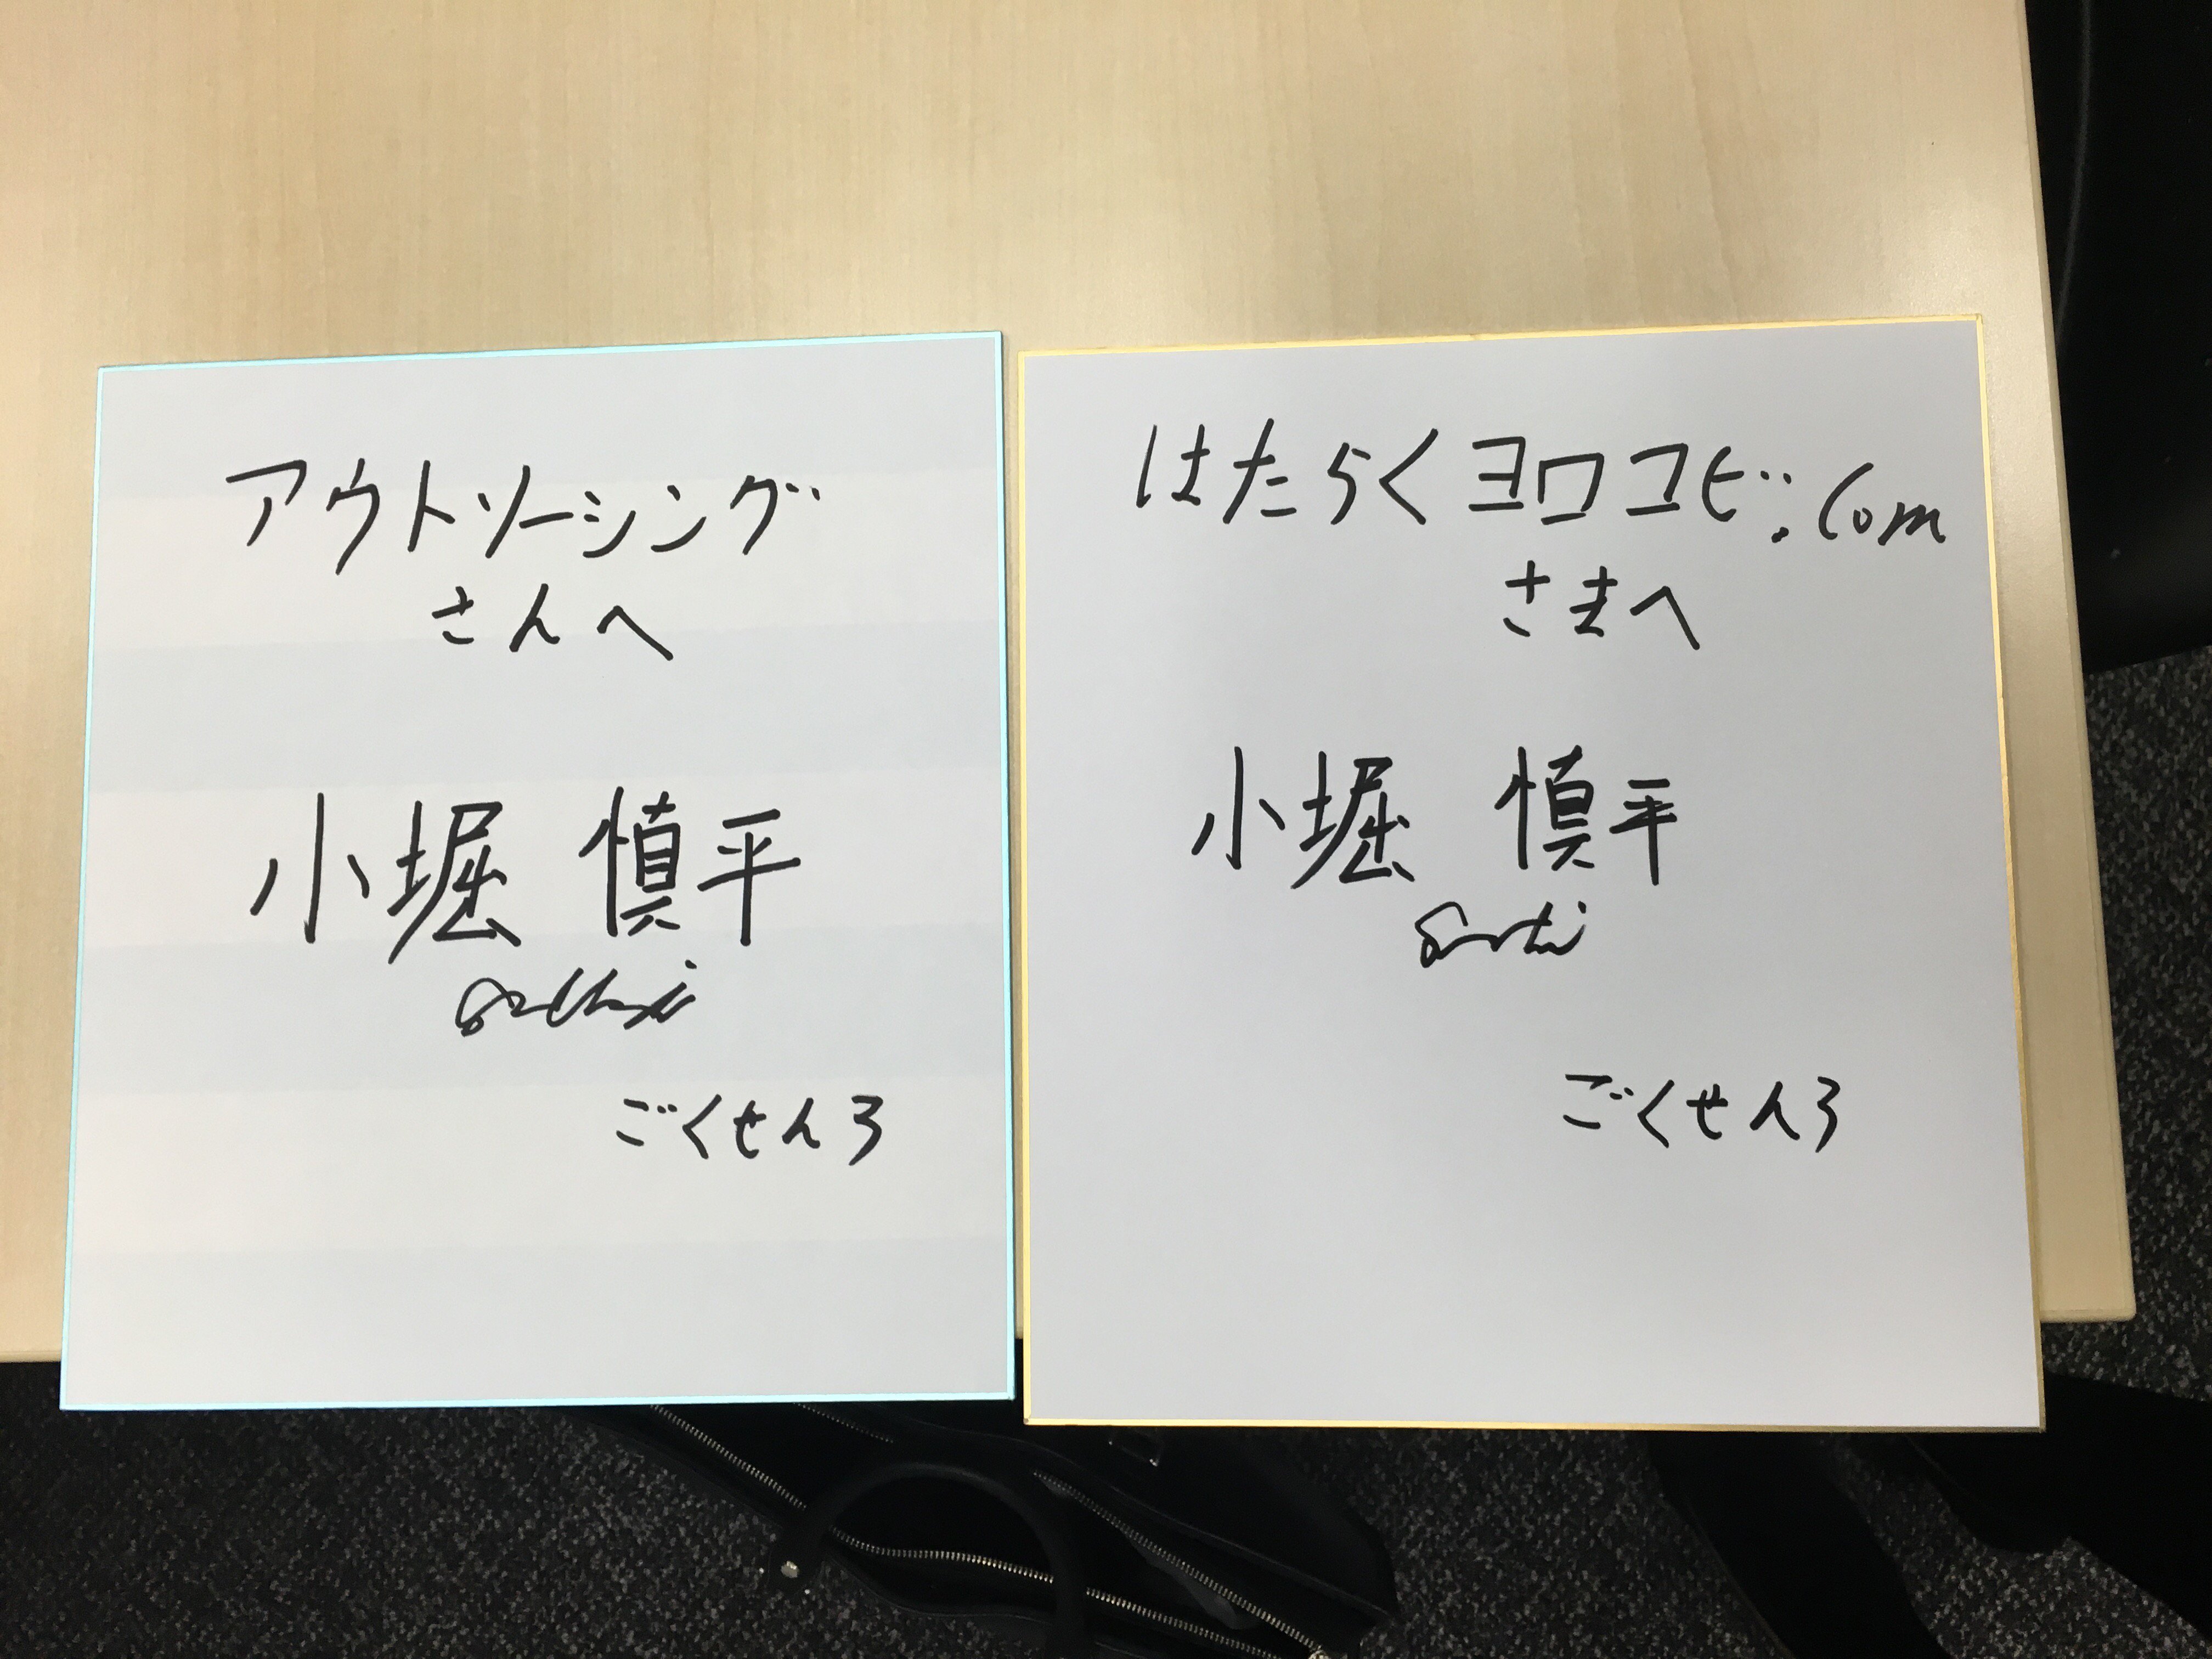 アウトソーシング
さんへ
小堀 慎平
ごくせん3
はたらくヨロコビ.com
さまへ
小堀 慎平
ごくせん3